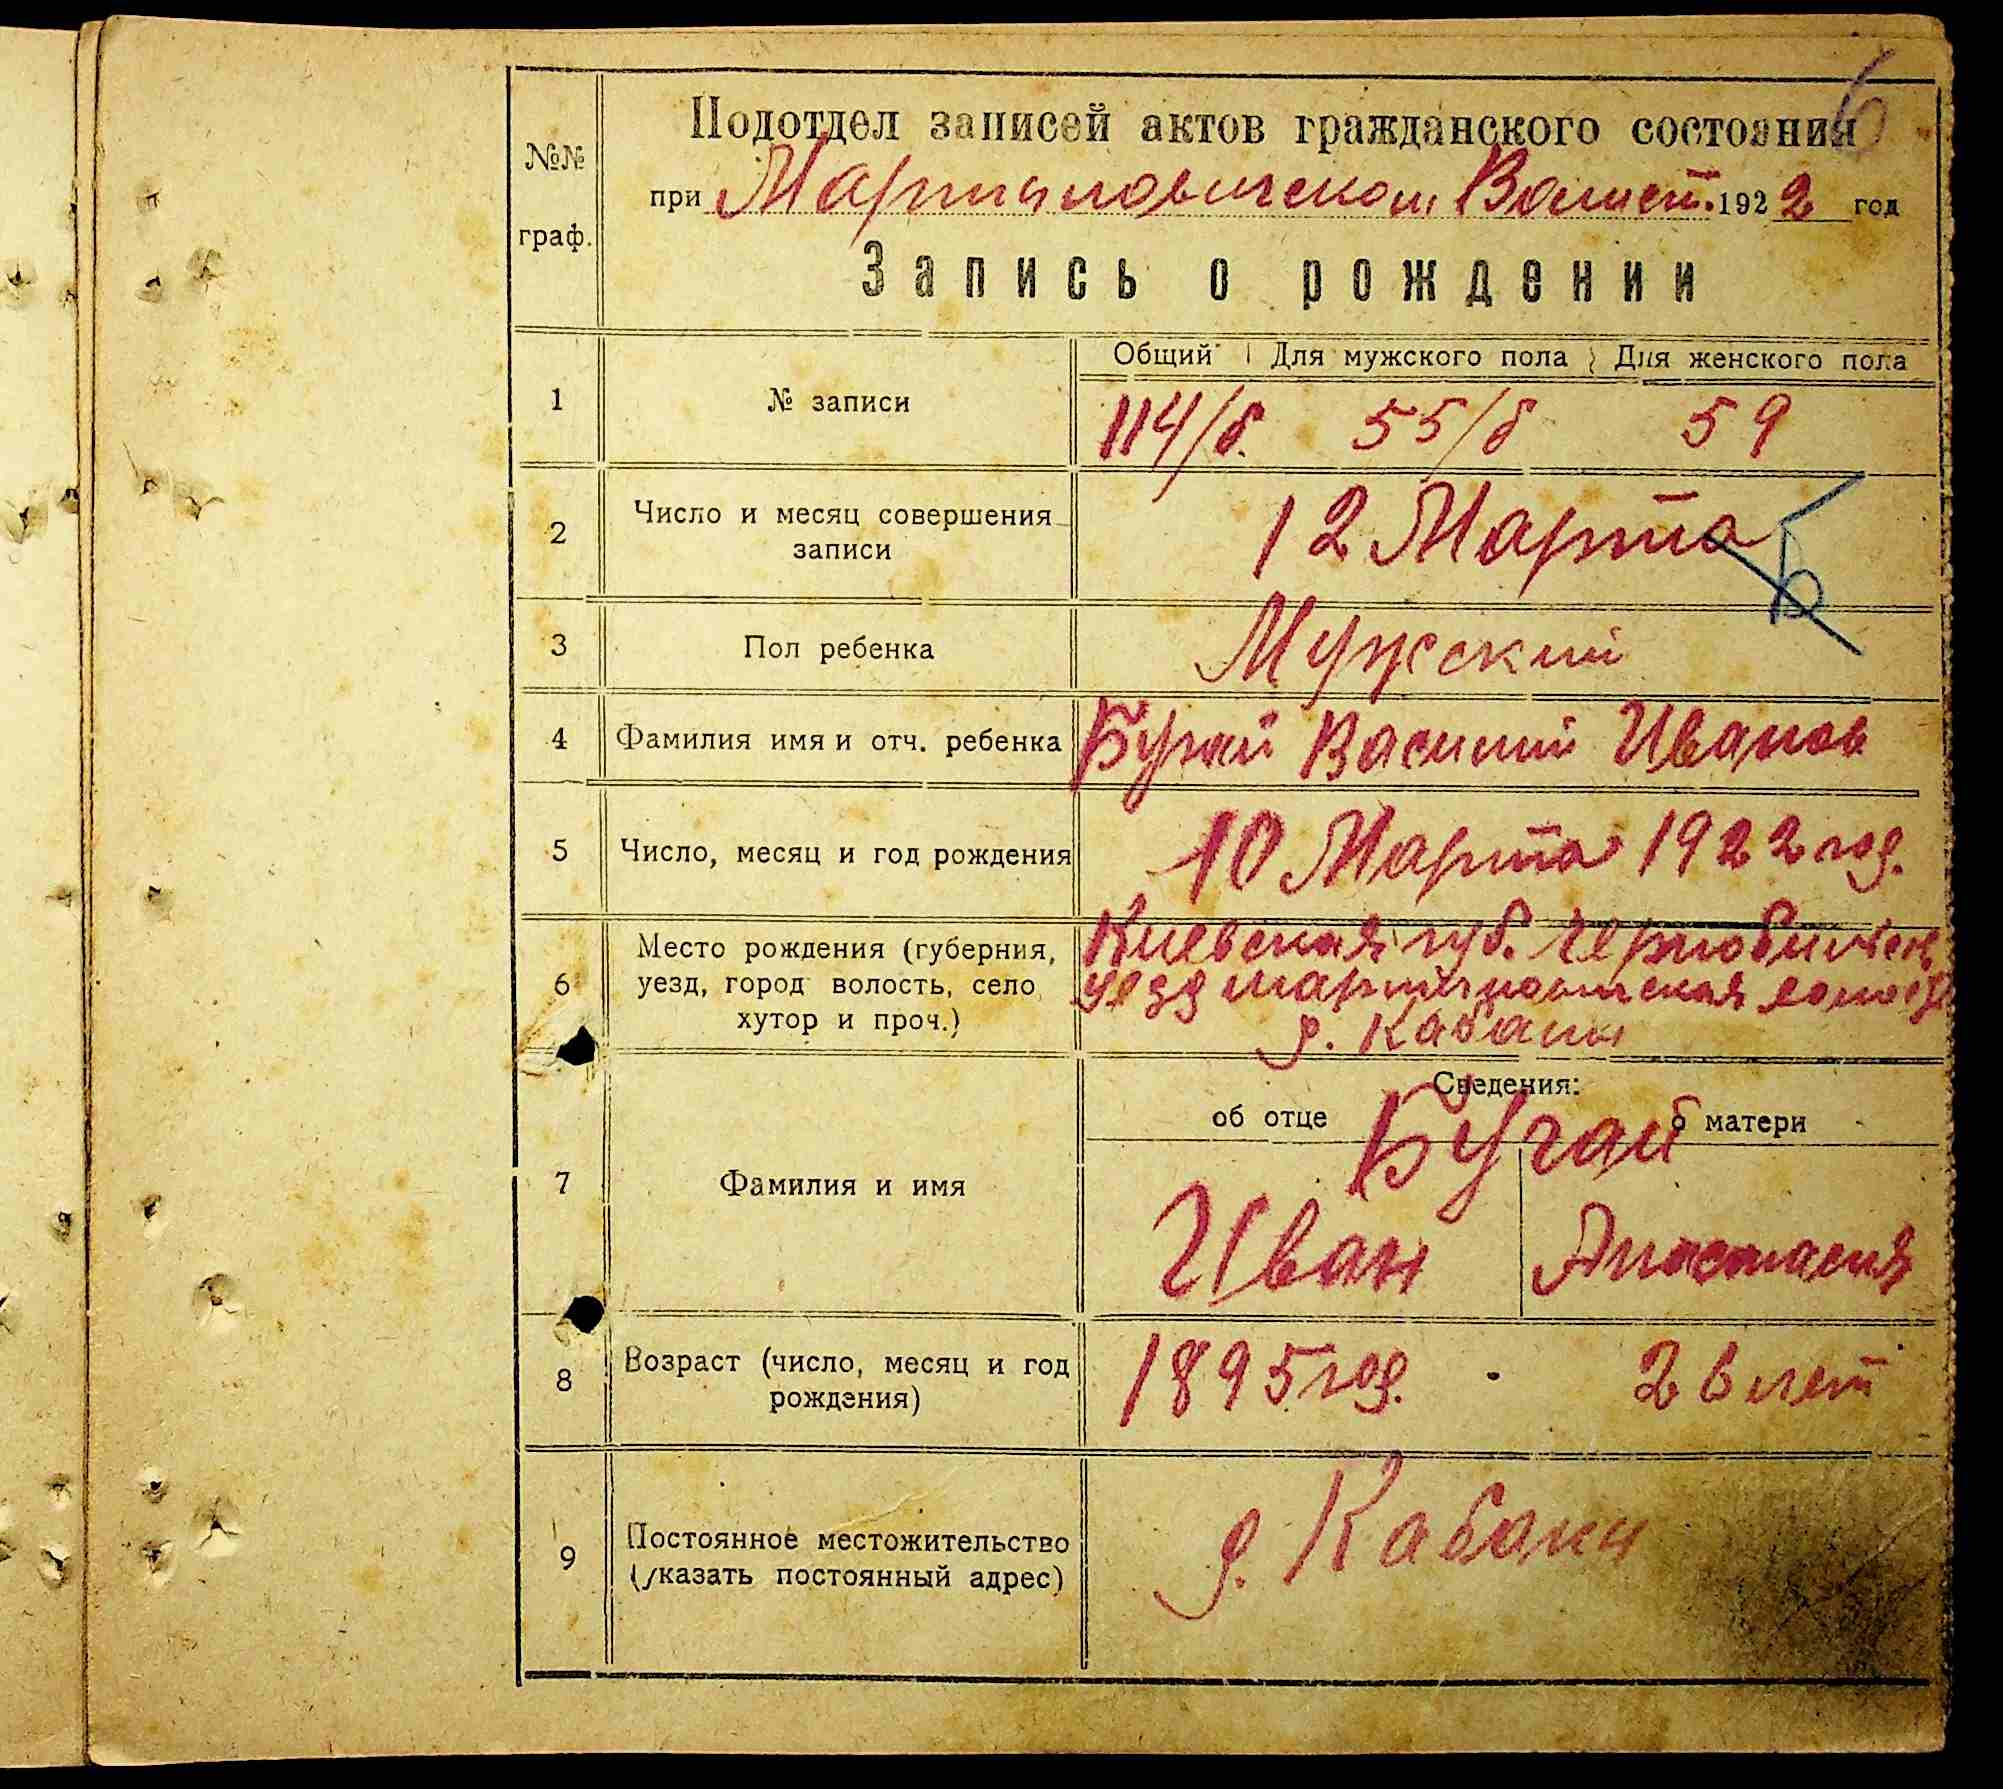 6
Подотдел записей актов гражданского состояния
№№ граф.
при Мартыновической Волист. 1922 год
Запись о рождении
Общий Для мужского пола Для женского пола
1 № записи 114/б. 55/б 59
2 Число и месяц совершения записи 12 Марта
Б
3 Пол ребенка Мужский
4 Фамилия имя и отч. ребенка Бугай Василий Иванов
5 Число, месяц и год рождения 10 Марта 1922 год.
6 Место рождения (губерния, Киевская губ. Чернобильск
уезд, город волость, село уезд Мартиновическая волость
хутор и проч.) д. Кабаны
Сведения:
об отце о матери
Бугай
7 Фамилия и имя Иван Анастасия
8 Возраст (число, месяц и год рождения) 1895 год. 26 лет
9 Постоянное местожительство д. Кабани
(указать постоянный адрес)